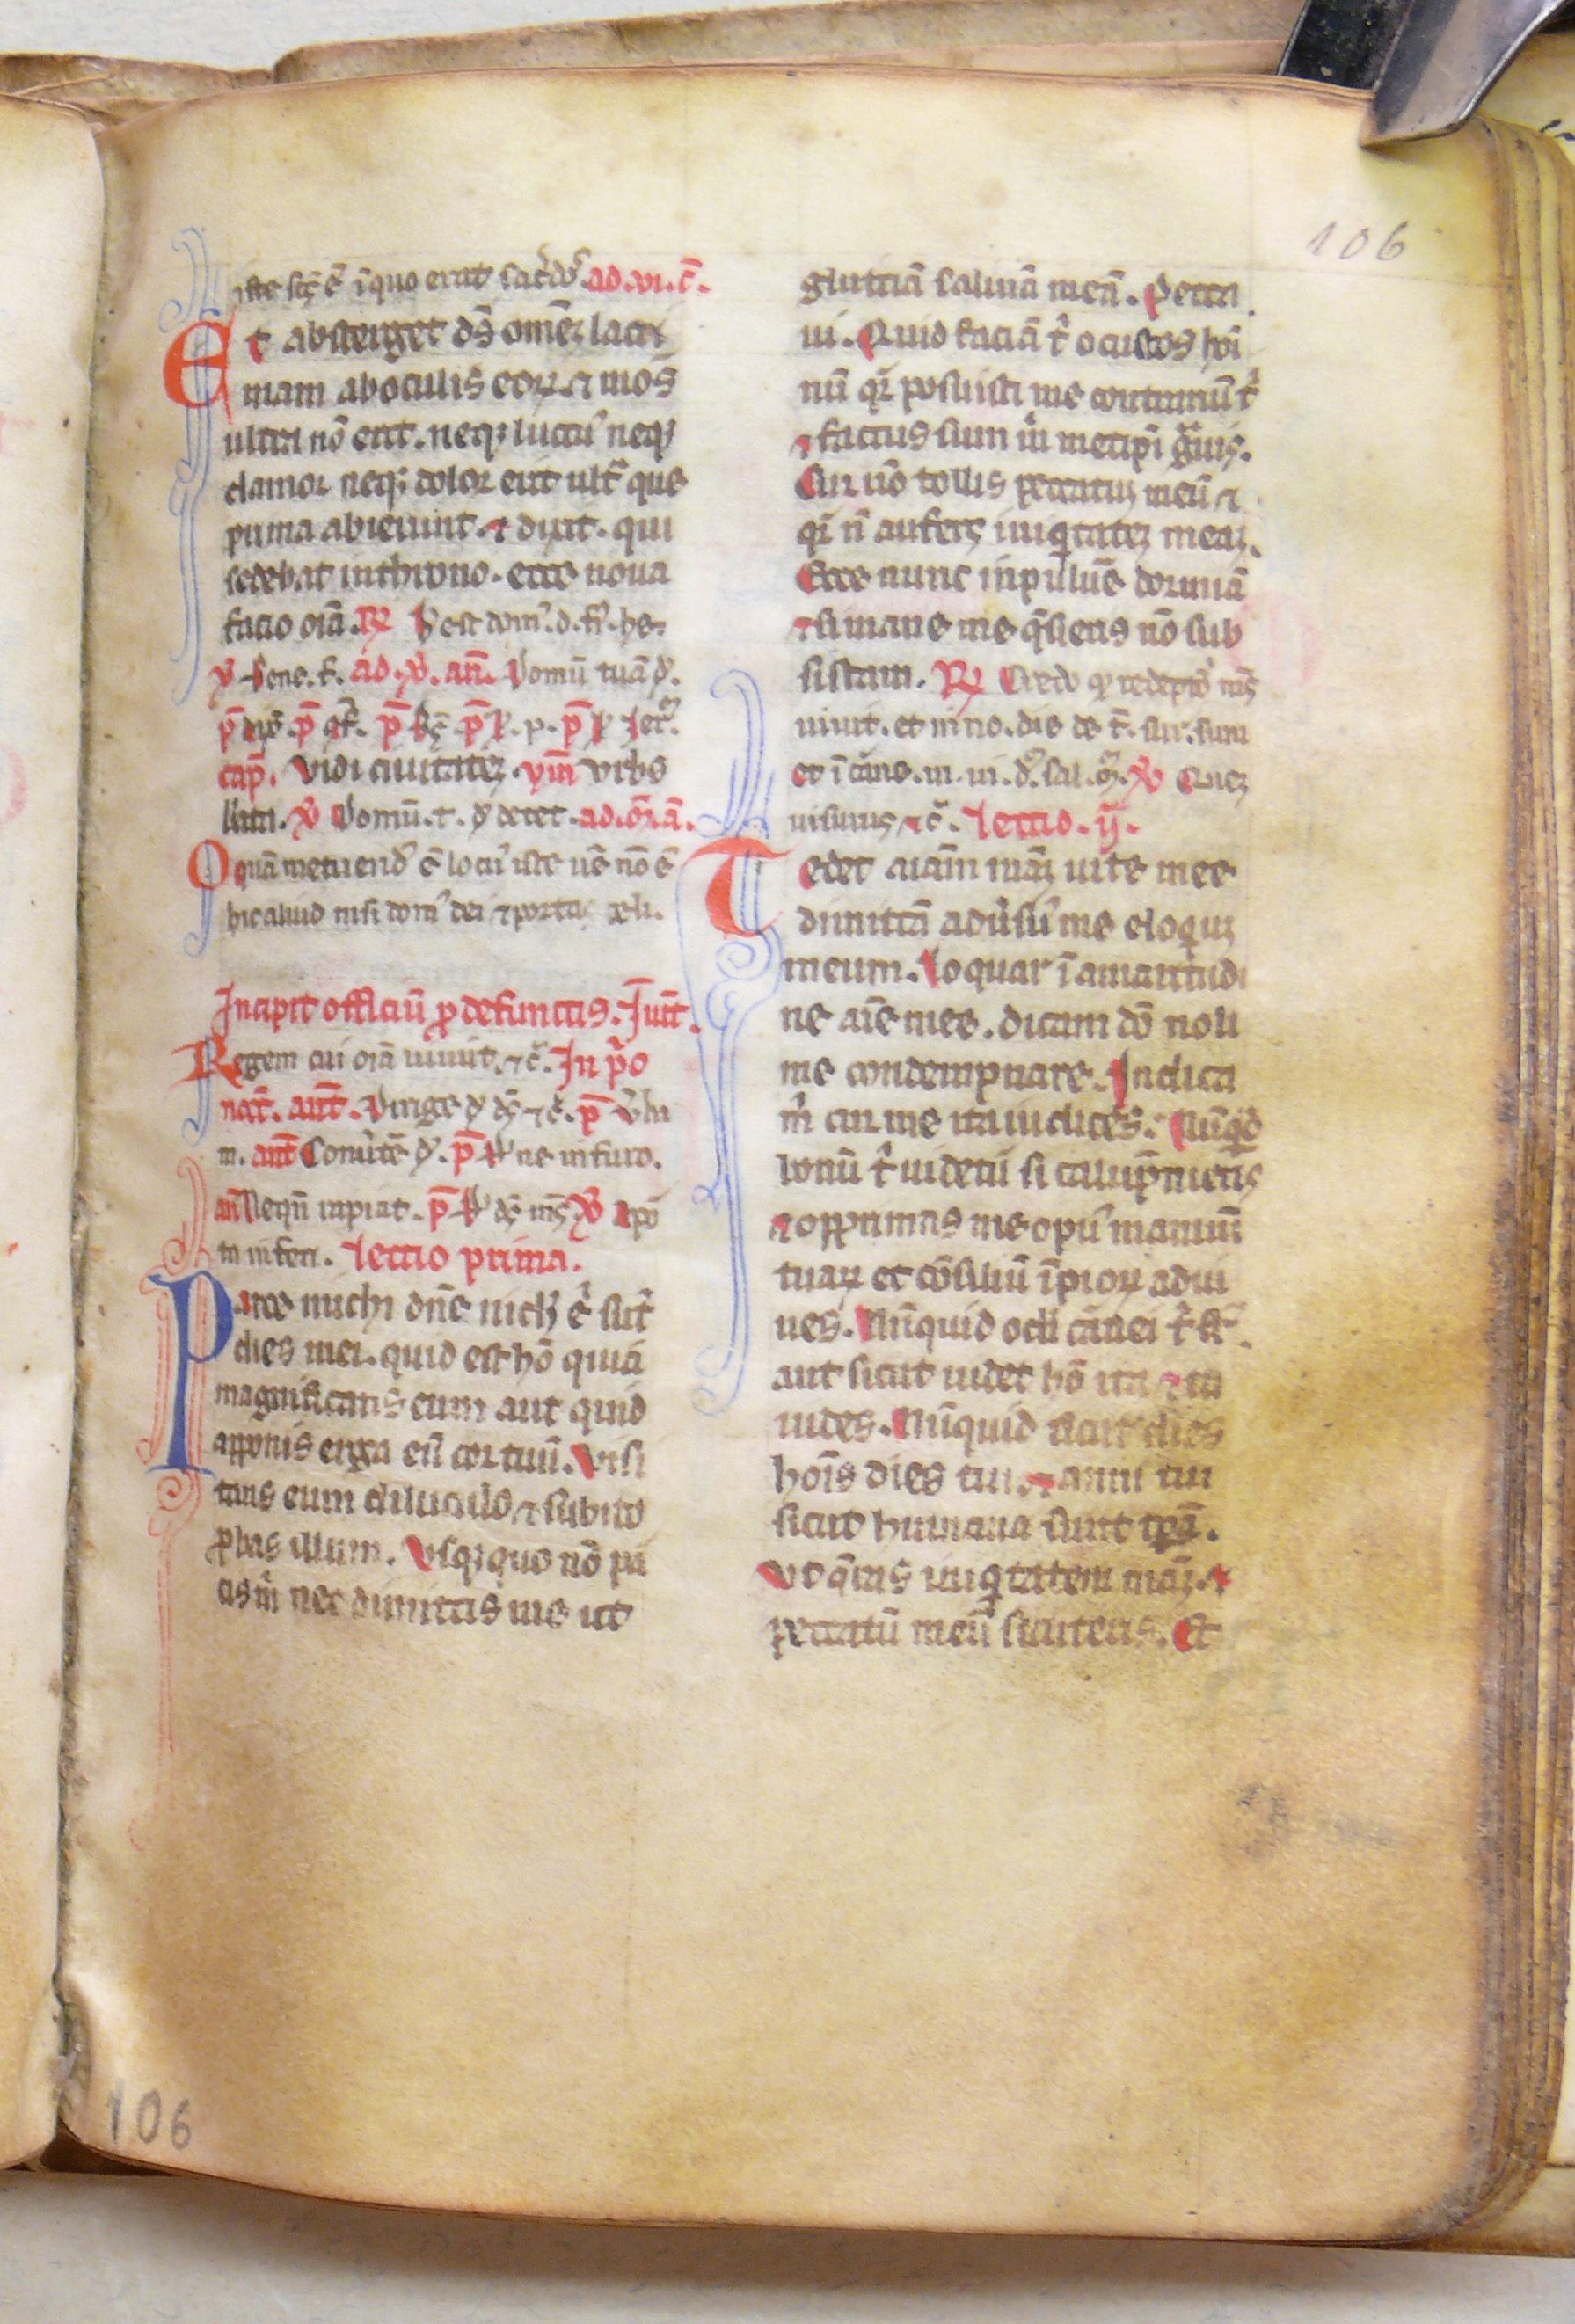 106
iste sc̄s ē ī quo erat sac̄dos ad.vi. c̄.
Et absterget dn̄s om̄ez lacri
mam aboculis eoꝝ ⁊ mors
ultra nō erit. neqꝫ luctus neqꝫ
clamor neqꝫ dolor erit ult̄ que
prima abierunt. ⁊ dixit. qui
sedebat inthrono. ecce noua
facio oīa. ℟
℣ bene. f. ad. ℣. an̄. Domū tuā d̄.
cap̄. Vidi ciuitatez. ym̄ Vrbs
℣ Domū. t. d̄ decet. ad. m̄. a.
O quā metuend ē locus iste ue nō ē
hic aliud nisi domus dei ⁊ porta celi.
Incipit officiū ꝓ defunctis. Iuīt.
Regem cui oīa uiuūt. ⁊c̄. In p̄o
noct̄. ant̄. Dirige d̄ ds ⁊c̄. p̄s Vba
m. ant̄ Conūtē d̄. p̄s d̄ ne infuro.
an̄ Nequn̄ rapiat. p̄s d̄ ds ms ℣ A por
ta inferi. lectio prima.
Parce michi dn̄e nichil ē sūt
dies mei. quid est hō quia
magnificans eum aut quid
apponis erga eū cor tuū. Visi
tans eum diluculo ⁊ subito
ꝓbas illum. Vsqꝫquo nō par
cis m̄ nec dimittis me ut
glutiā saliuā meā. Pecca
ui. Quid faciā t̄ o custos homi
nū qr̄ posuisti me contrariū t̄
⁊ factus sum m̄ metip̄i grauis.
Cur nō tollis peccatuꝫ meū ⁊
qr̄ n̄ aufers iniqtateꝫ meaꝫ.
Ecce nunc inpuluē dormiā
⁊ si mane me q̄sieris nō sub
sistam. ℟ Credo qd redēptor ms
uiuit. et in no. die de t̄. sur. sum
et ī carne. m. ui. d. sal. m. ℣ Quez
uisurus ⁊c̄. lectio. ij.
Tedet aīam meaꝫ uite mee
dimittā aduersus me eloquiꝫ
meum. loquar ī amaritudi
ne aīe mee. dicam dō noli
me condempnare. Indica
m̄ cur me ita iudices. Nūqd
bonū t̄ uidetur si calūpnieris
⁊ opprimas me opus manuū
tuaꝝ et cōsiliū īpioꝝ adiu
ues. Nūquid oculi carnei t̄ st̄
aut sicut uidet hō ita ⁊ tu
uides. Nūquid sicut dies
hoīs dies tui. ⁊ anni tui
sicut humana sunt tp̄a.
Vt q̄ras iniqtatem meaꝫ. ⁊
peccatū meū scruteris. Et
106